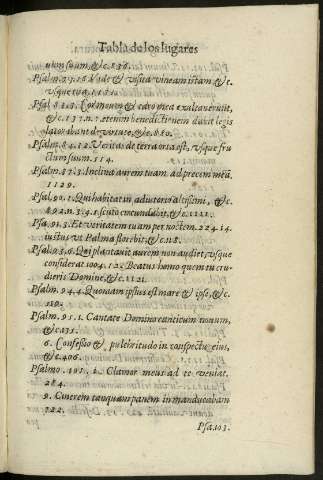 Tabla de los lugares
uium suum, &c. 836.
Psal. 79.16. Vide, & visita vineam istam &c.
vsque tua. 1151.
Psal. 82.3. Cor meum & caro mea exultauerunt,
&c. 137. n. 7. etenim benedictionem dabit legis
lator ibunt de virtute, &c. 880.
Psalm. 84.12. Veritas de terra orta est, vsque fru
ctum suum. 514.
Psalm. 87.3. Inclina aurem tuam ad precem meã.
1129.
Psal. 90.1. Qui habitat in adiutorio altissimi, &c.
892. n. 3. 9. 1. scuto circundabit, &c. 1111.
Psa. 91.3. Et veritatem tuam per noctem. 224 14.
iustus vt Palma florebit, &c. 118.
Psal. 93.6. Qui plantauit aurem non audiet, vsque
considerat 1004. 12. Beatus homo quem tu eru
dieris Domine, &c. 1121.
Psalm. 94.4. Quoniam ipsius est mare & ipse, &c.
510.
Psalm. 95.1. Cantate Domino canticum nouum,
&c. 135.
6. Confessio &, pulchritudo in conspectu eius,
&c. 406.
Psalmo. 101. 1. Clamor meus ad te veniat.
284.
9. Cinerem tanquam panem in manducabam
122.
Psa. 103.